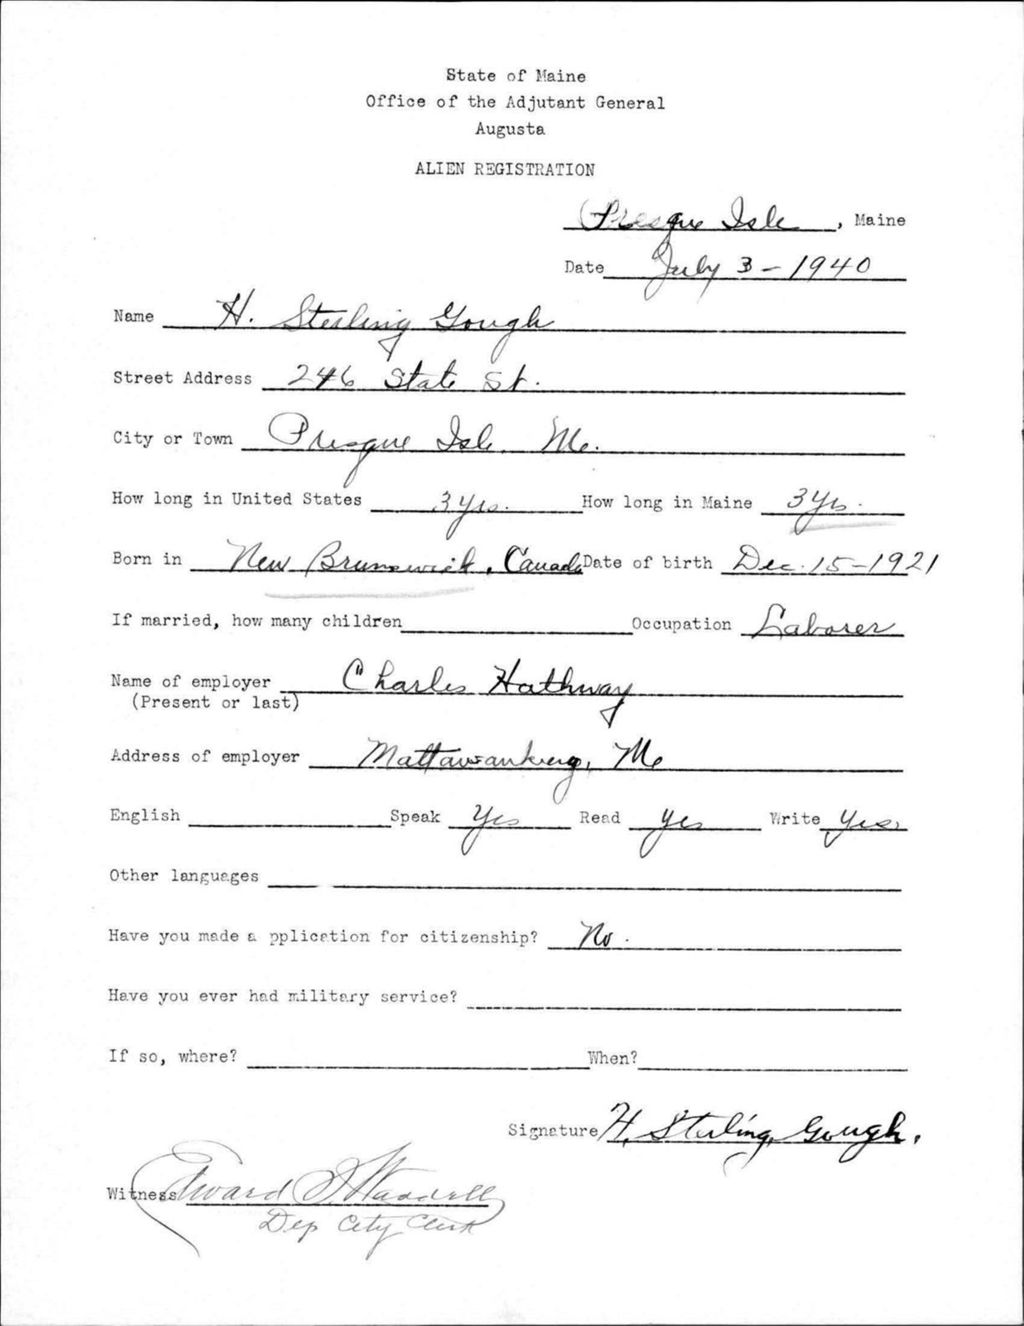 State of Maine
Office of the Adjutant General
Augusta
ALIEN REGISTRATION
Presque Isle, Maine
Date July 3-1940
Name H. Sterling Gough
Street Address 246 State St.
City or Town Presque Isle, Me.
How long in United States 3 yrs. How long in Maine 3 yrs.
Born in New Brunswick, Canada Date of birth Dec. 15-1921
If married, how many children Occupation Laborer
Name of employer Charles Hathway
(Present or last)
Address of employer Me
English Speak Yes Read yes Write yes
Other languages
Have you made a pplication for citizenship? No.
Have you ever had military service?
If so, where? When?
Signature H. Sterling Gough.
Witness Edward Waddell
Dep City Clerk